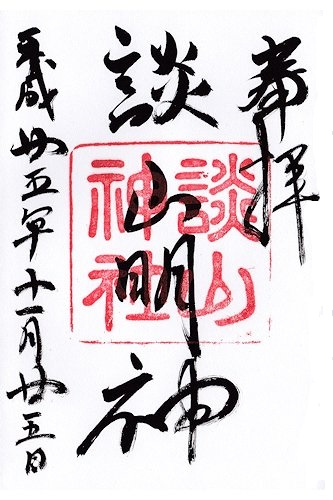 奉拝
談山明神
談山神社
平成廿五年十一月廿五日